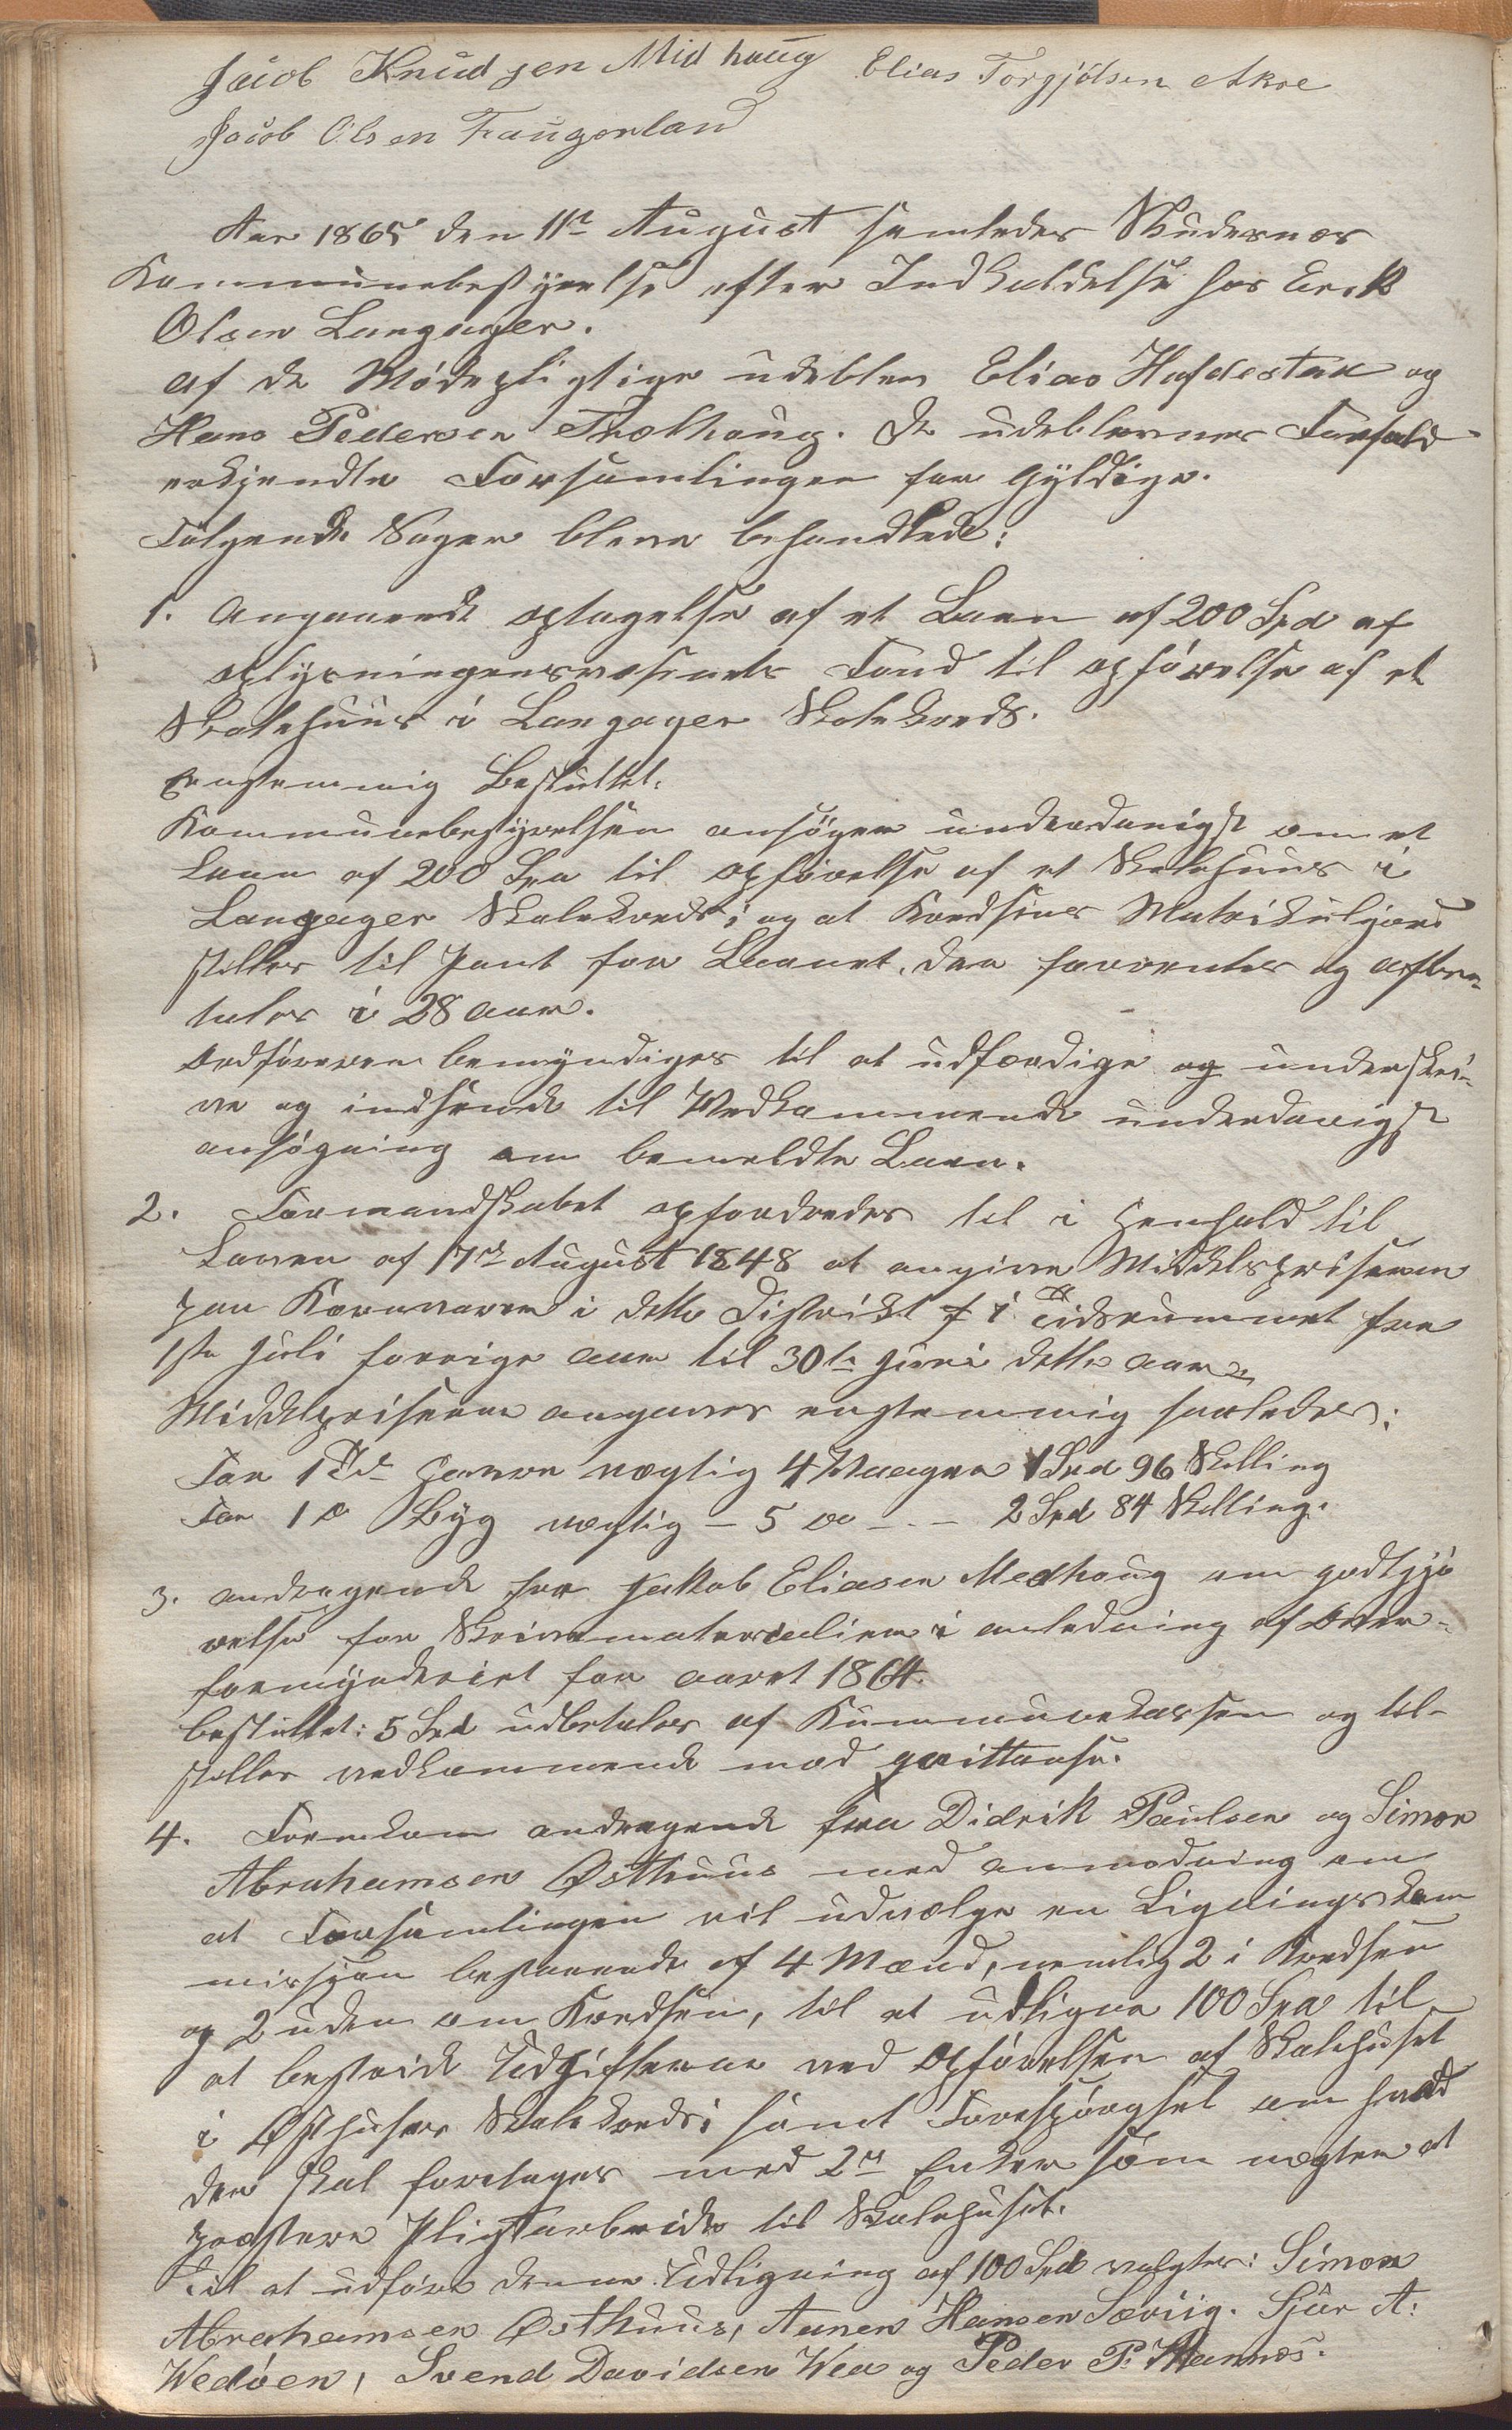 Jacob Knudsen Midhaug Elias Torgjølsen Akre
Jacob Olsen Faugerland
Aar 1865 den 11te August samledes Skudesnæs
Kommunebestyrelse efter Indkaldelse hos Erik
Olsen Langager.
af de Mødepligtige udebleve Elias Hafdestak og
Hans Pedersen Thothaug. De udeblevnes Forfald
erkjendte Forsamlingen for gyldige.
Følgende Sager bleve behandlede:
1. Angaaende optagelse af et Laan af 200 Spd af
oplysningensvæsenets Fond til opførelse af et
Skolehuus i Langager Skolekreds.
Enstemmig Besluttet.
Kommunebestyrelsen ansøger underdanigst om et
Laan af 200 Spd til opførelse af et Skolehuus i
Langager Skolekreds; og at Kredsens Matrikuljord
stilles til Pant for Laanet, der forrentes og afbe-
tales i 28 aar.
Ordføreren bemyndiges til at udfærdige og underskri-
ve og indsende til Vedkommende underdanigst
ansøgning om bemeldte Laan.
2. Formandskabet opfordredes til i Henhold til
Loven af 17de August 1848 at angive Middelspriserne
paa Kornvarer i dette Distrikt i Tidsrummet fra
1ste Juli forrige aar til 30te Juni dette aar.
Middelpriserne angaves enstemmig saaledes:
For 1 Td Havre vægtig 4 Vaager 1 Spd 96 Skilling
For 1 do Byg vægtig - 5 do - - - 2 Spd 84 Skilling.
3. andragende fra Jakob Eliasen Medhaug om godtgjø
relse for Skrivematerialier i anledning af Over-
formynderiet for aaret 1864.
besluttet: 5 Spd udbetales af Kummunekassen og til-
stilles vedkommende mod qvittanse.
4. Fremkom andragende fra Didrik Paulsen og Simon
Abrahamsen Østhuus med anmodning om
at Forsamlingen vil udvælge en Ligningskom
missjon bestaaende af 4 Mænd, nemlig 2 i Kredsen
og 2 uden om Kredsen, til at udligne 100 Spd til
at bestride Udgifterne ved Opførelsen af Skolehuset
i Østhuses Skolekreds; samt Forespørgsel om hvad
der skal foretages med 2de Enker som nægter at
præstere Pligtarbeide til Skolehuset.
Til at udføre denne Udligning af 100 Spd valgtes: Simon
Abrahamsen Østhuus, Aanen Hansen Sæviig. Sjur A:
Wedøen, Svend Davidsen Wea og Peder P. Mannæs.